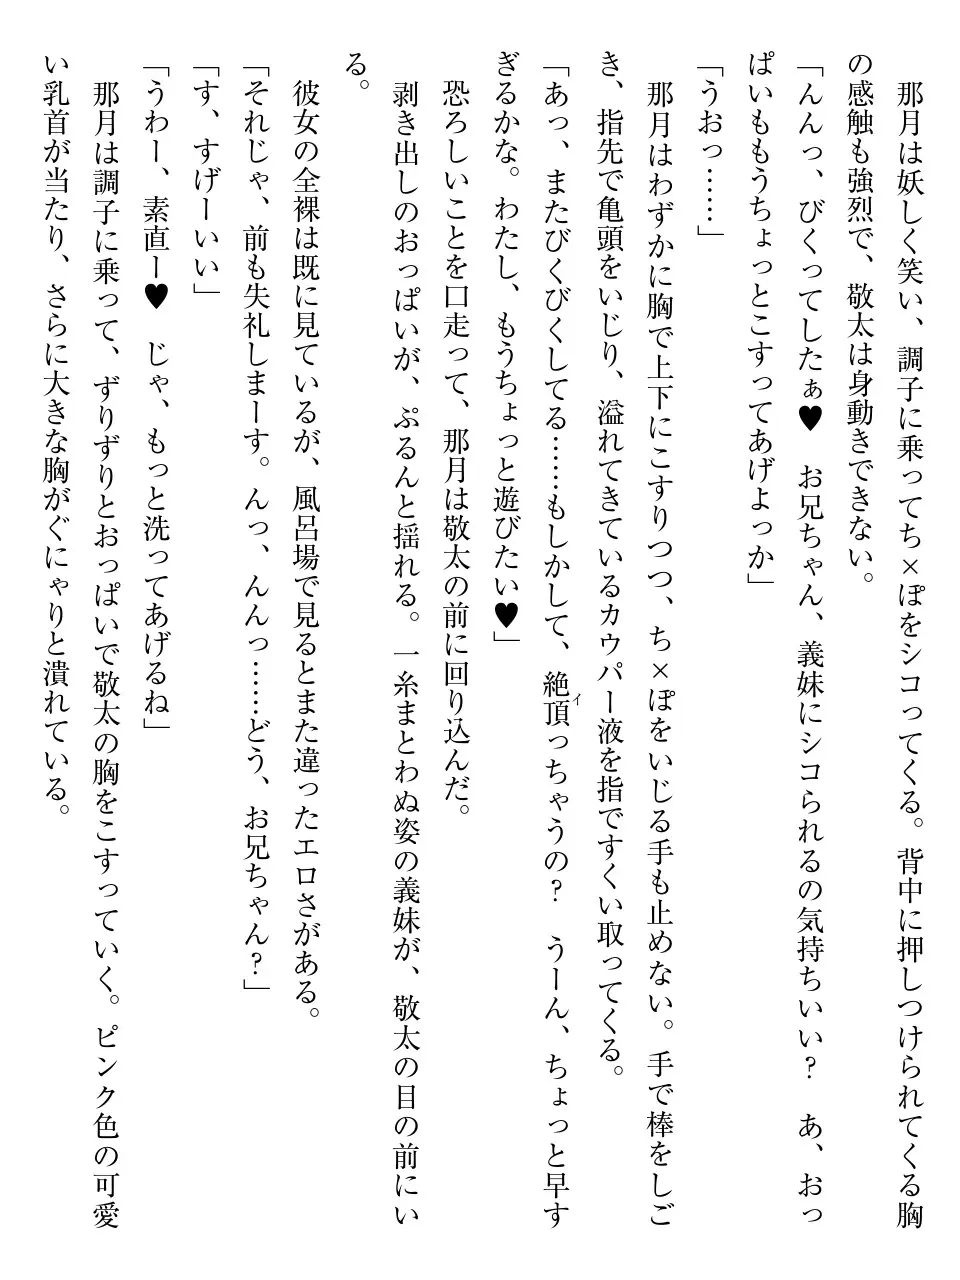 那月は妖しく笑い、調子に乗ってち×ぽをシコってくる。背中に押しつけられてくる胸
の感触も強烈で、敬太は身動きできない。
「んんっ、びくってしたぁ♥　お兄ちゃん、義妹にシコられるの気持ちいい？　あ、おっ
ぱいももうちょっとこすってあげよっか」
「うおっ……」
那月はわずかに胸で上下にこすりつつ、ち×ぽをいじる手も止めない。手で棒をしご
き、指先で亀頭をいじり、溢れてきているカウパー液を指ですくい取ってくる。
「あっ、またびくびくしてる……もしかして、絶頂っちゃうの？　うーん、ちょっと早す
ぎるかな。わたし、もうちょっと遊びたい♥」
恐ろしいことを口走って、那月は敬太の前に回り込んだ。
剥き出しのおっぱいが、ぷるんと揺れる。一糸まとわぬ姿の義妹が、敬太の目の前にい
る。
彼女の全裸は既に見ているが、風呂場で見るとまた違ったエロさがある。
「それじゃ、前も失礼しまーす。んっ、んんっ……どう、お兄ちゃん？」
「す、すげーいい」
「うわー、素直ー♥　じゃ、もっと洗ってあげるね」
那月は調子に乗って、ずりずりとおっぱいで敬太の胸をこすっていく。ピンク色の可愛
い乳首が当たり、さらに大きな胸がぐにゃりと潰れている。